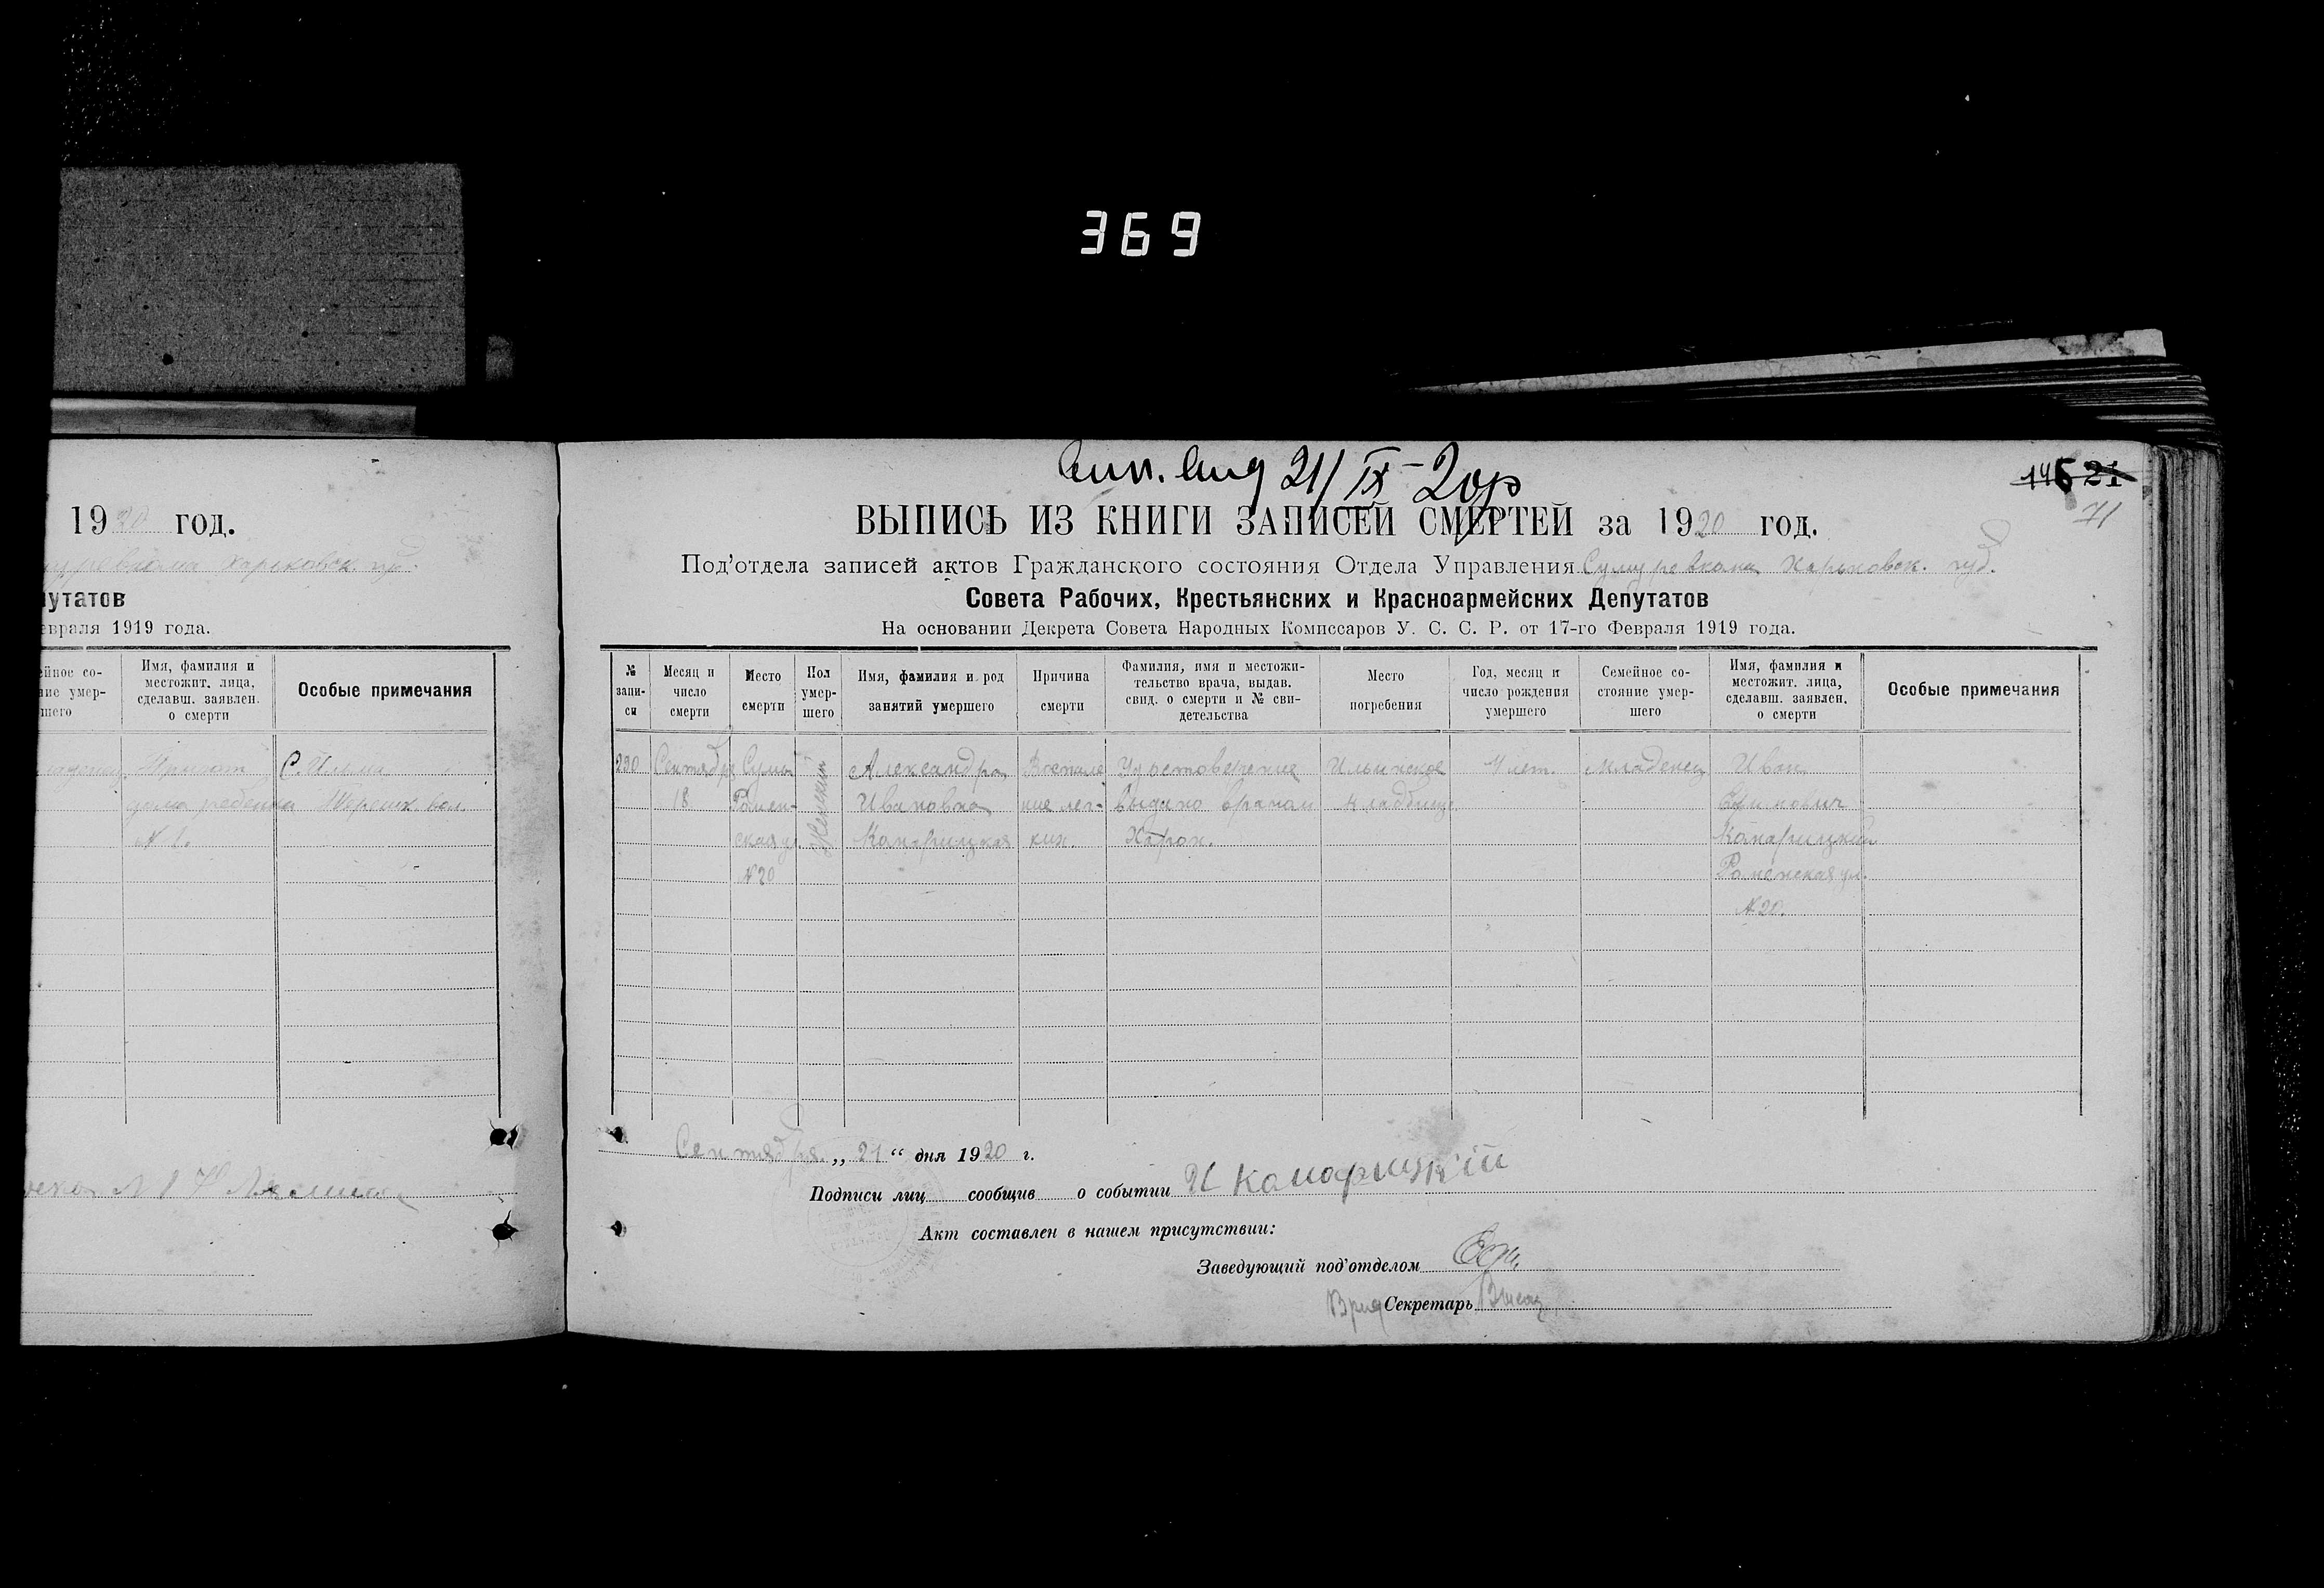 369
1920 год.
Харьковск. гу.
путатов
евраля 1919 года.
ейное со-
ние умер-
шего
Имя, фамилия и
местожит. лица,
сделавш. заявлен.
о смерти
Особые примечания
Приют
дома ребенка
N 1.
С. Ильма
вол.
21/IX-20 р
146 21
71
ВЫПИСЬ ИЗ КНИГИ ЗАПИСЕЙ СМЕРТЕЙ за 1920 год.
Под'отдела записей актов Гражданского состояния Отдела Управления Сумуревкома Харьковск. губ.
Совета Рабочих, Крестьянских и Красноармейских Депутатов
На основании Декрета Совета Народных Комиссаров У. С. С. Р. от 17-го Февраля 1919 года.
№
запи-
си
Месяц и
число
смерти
Место
смерти
Пол
умер-
шего
Имя, фамилия и род
занятий умершего
Причина
смерти
Фамилия, имя и местожи-
тельство врача, выдав.
свид. о смерти и № сви-
детельства
Место
погребения
Год, месяц и
число рождения
умершего
Семейное со-
стояние умер-
шего
Имя, фамилия и
местожит. лица,
сделавш. заявлен.
о смерти
Особые примечания
290
Сентябр
18
Сумы
Ромен-
ская ул.
N 20
Женский
Александра
Ивановна
Канарицкая
Воспале
ние лег-
ких.
Удостоверение
выдано врачом
Ильинское
кладбище
4 лет.
Младенец
Иван
Ефимович
Канарицкий
Роменская ул.
N 20.
Сентября „ 21 “ дня 1920 г.
Подписи лиц сообщив о событии И Канарицкій
Акт составлен в нашем присутствии:
Заведующий под'отделом
Врид Секретарь